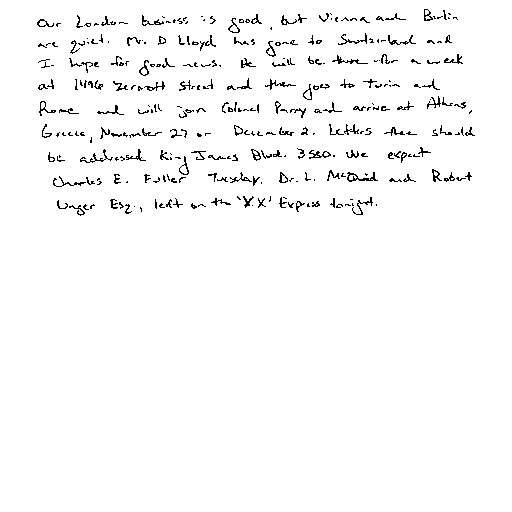 Our London business is good, but Vienna and Berlin
are quiet. Mr. D Lloyd has gone to Switzerland and
I hope for good news. He will be there for a week
at 1496 Zermott Street and then goes to Turin and
Rome and will join Colonel Parry and arrive at Athens,
Greece, November 27 or December 2. Letters there should
be addressed King James Blvd. 3580. We expect
Charles E. Fuller Tuesday. Dr. L. McQuaid and Robert
Unger Esq., left on the 'XX' Express tonight.